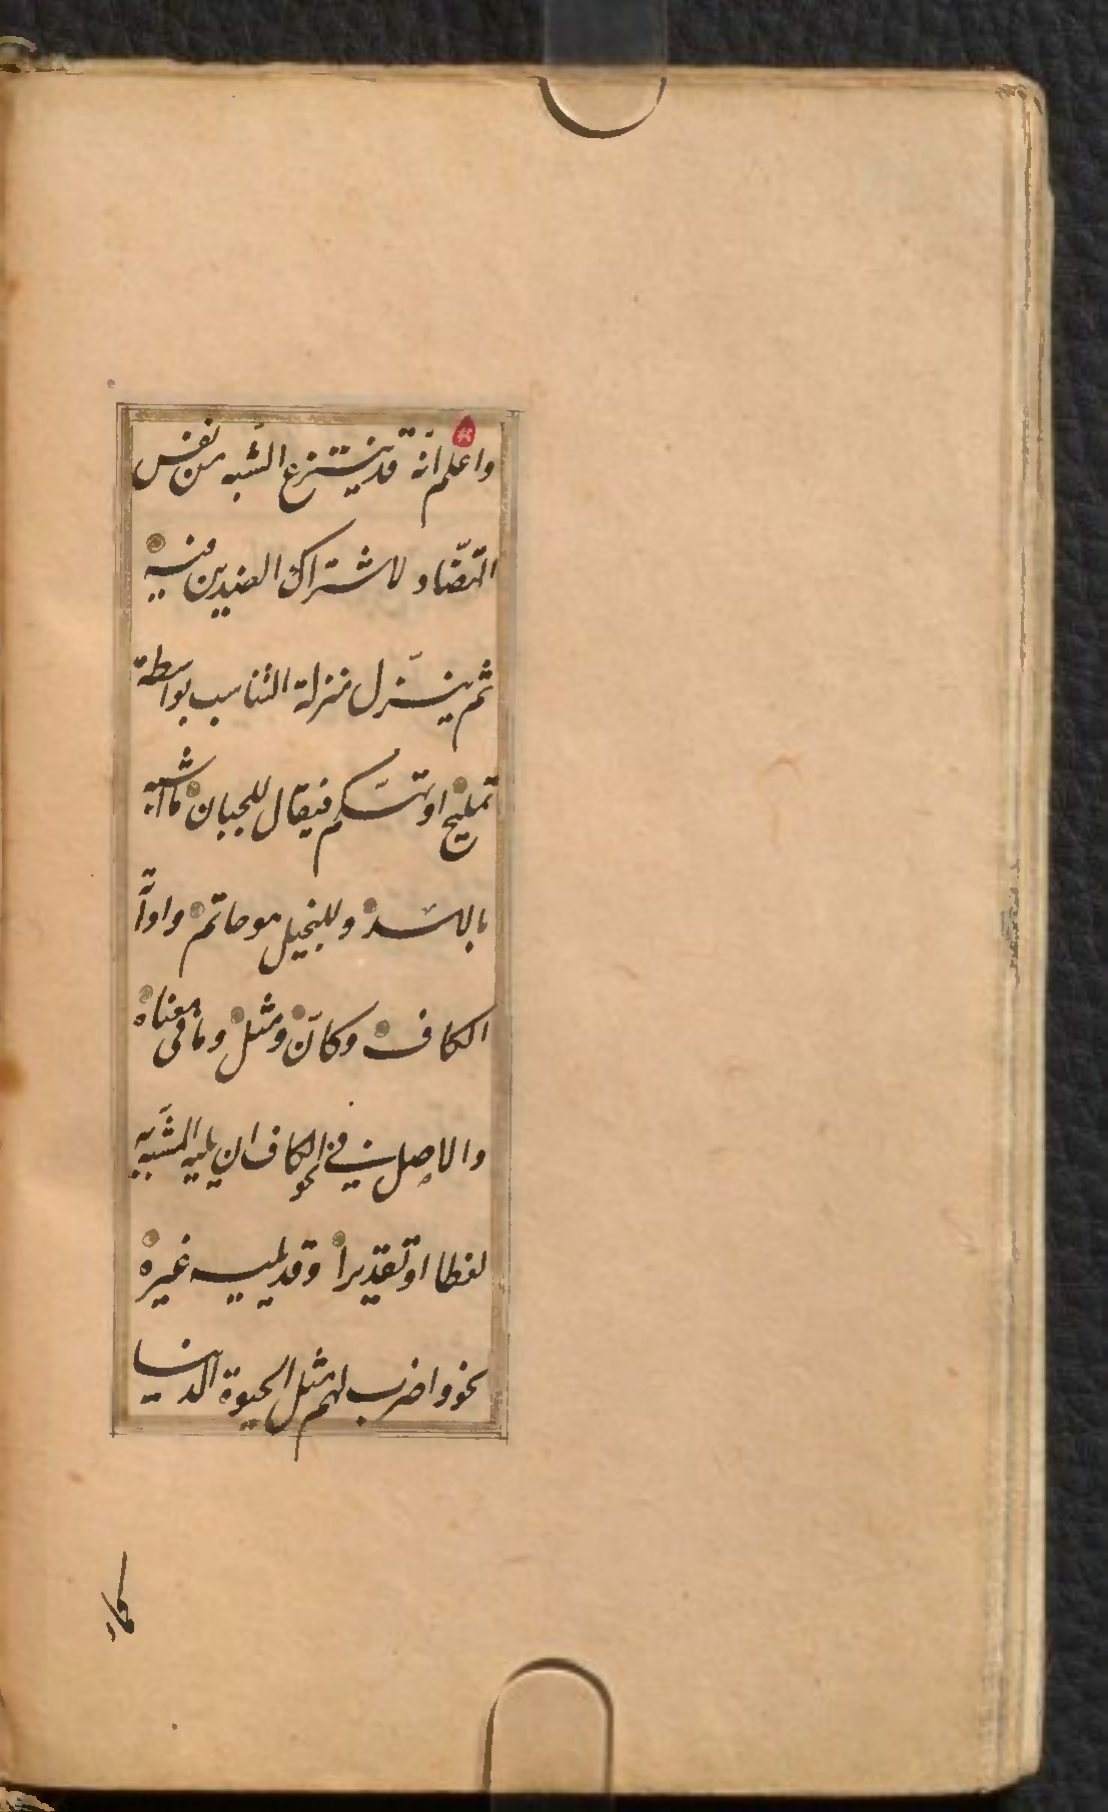 واعلم انّه قد ينتزع الشّبه من نفس
التّضّاد لاشتراك الضدين فيه
ثم ينزّل منزلة التناسب بواسطة
تمليح او تهكم فيقال للجبان ما اشبهه
بالاسد وللبخيل هو حاتم واداتّه
الكاف وكانّ ومثل وما فى معناه
والاصل فى نحو الكاف ان يليه المشبّه به
لفظا او تقديرا وقد يليه غيره
نحو واضرب لهم مثل الحيوة الدنيا
كماء